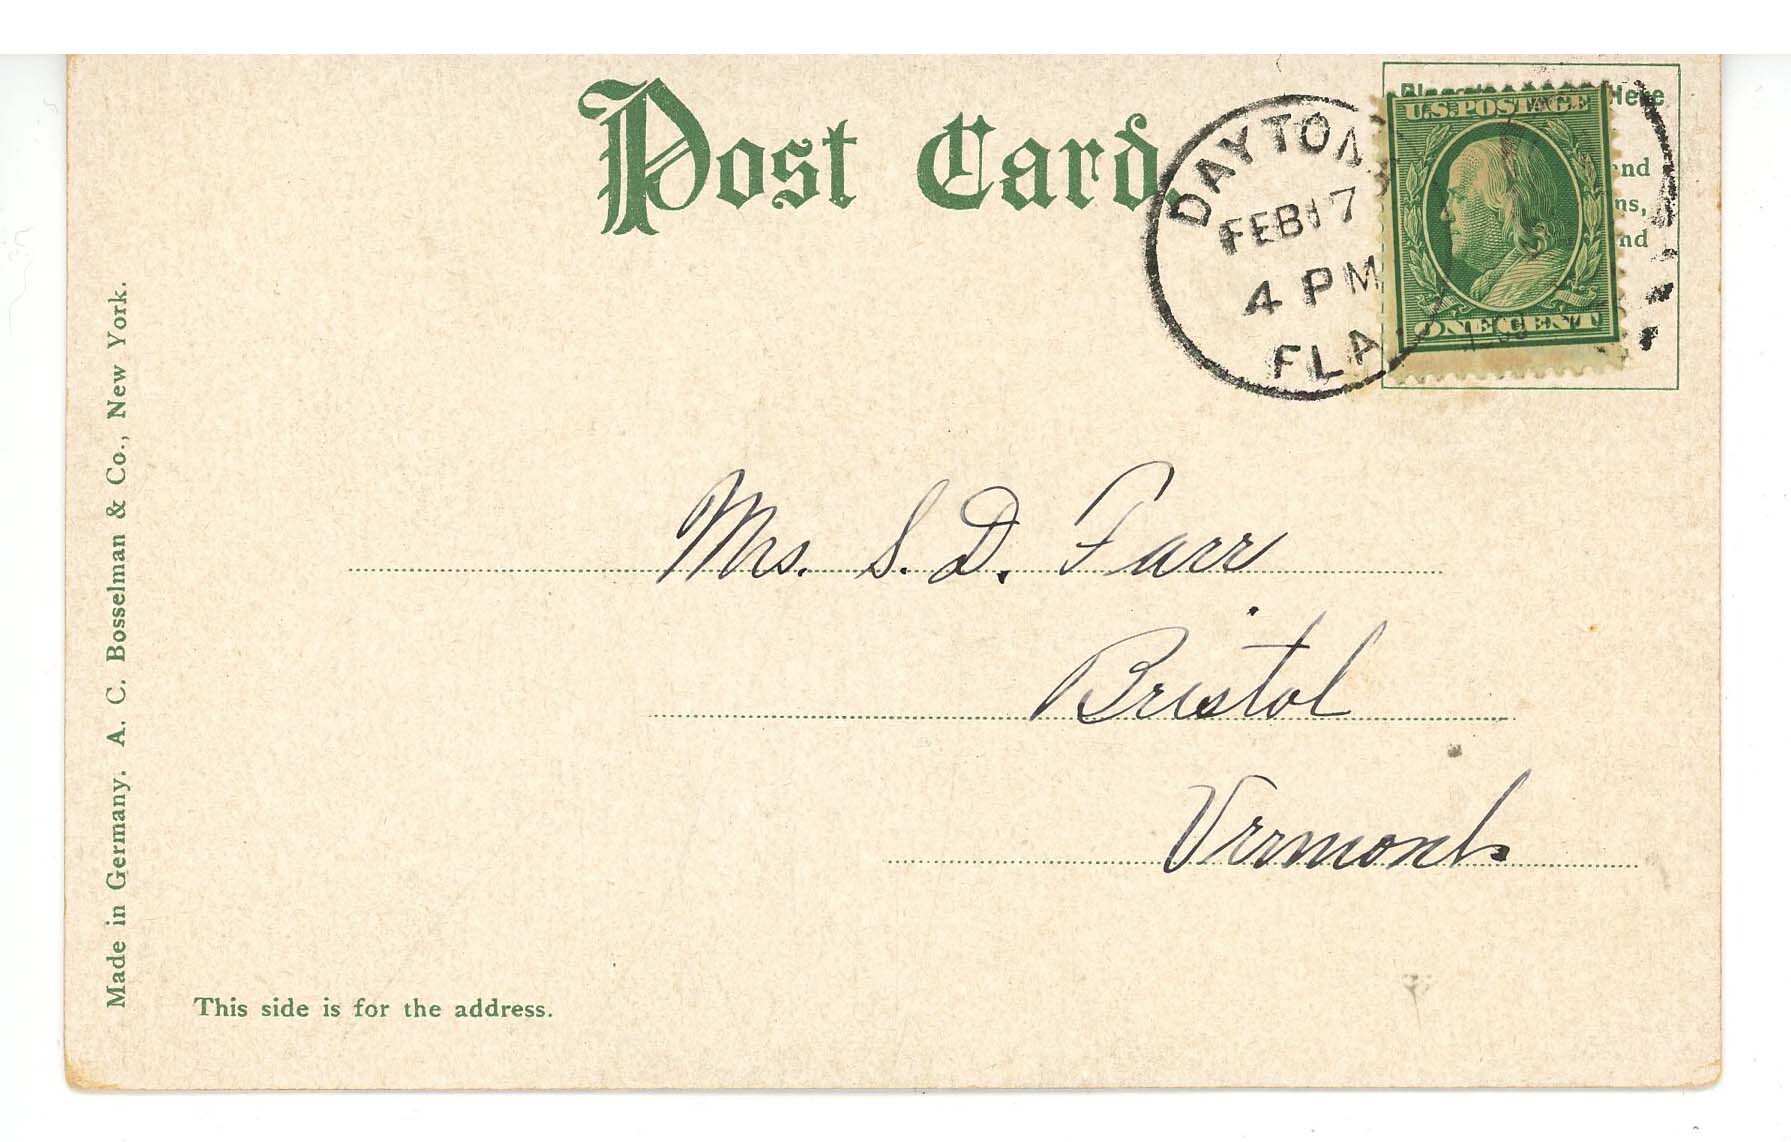 Post Card.
Here
U.S. POSTAGE
nd
ns,
nd
ONE CENT
DAYTONA
FEB 17
4 PM
FLA.
Mrs. S. D. Farr
Bristol
Vermont.
This side is for the address.
Made in Germany. A. C. Bosselman & Co., New York.